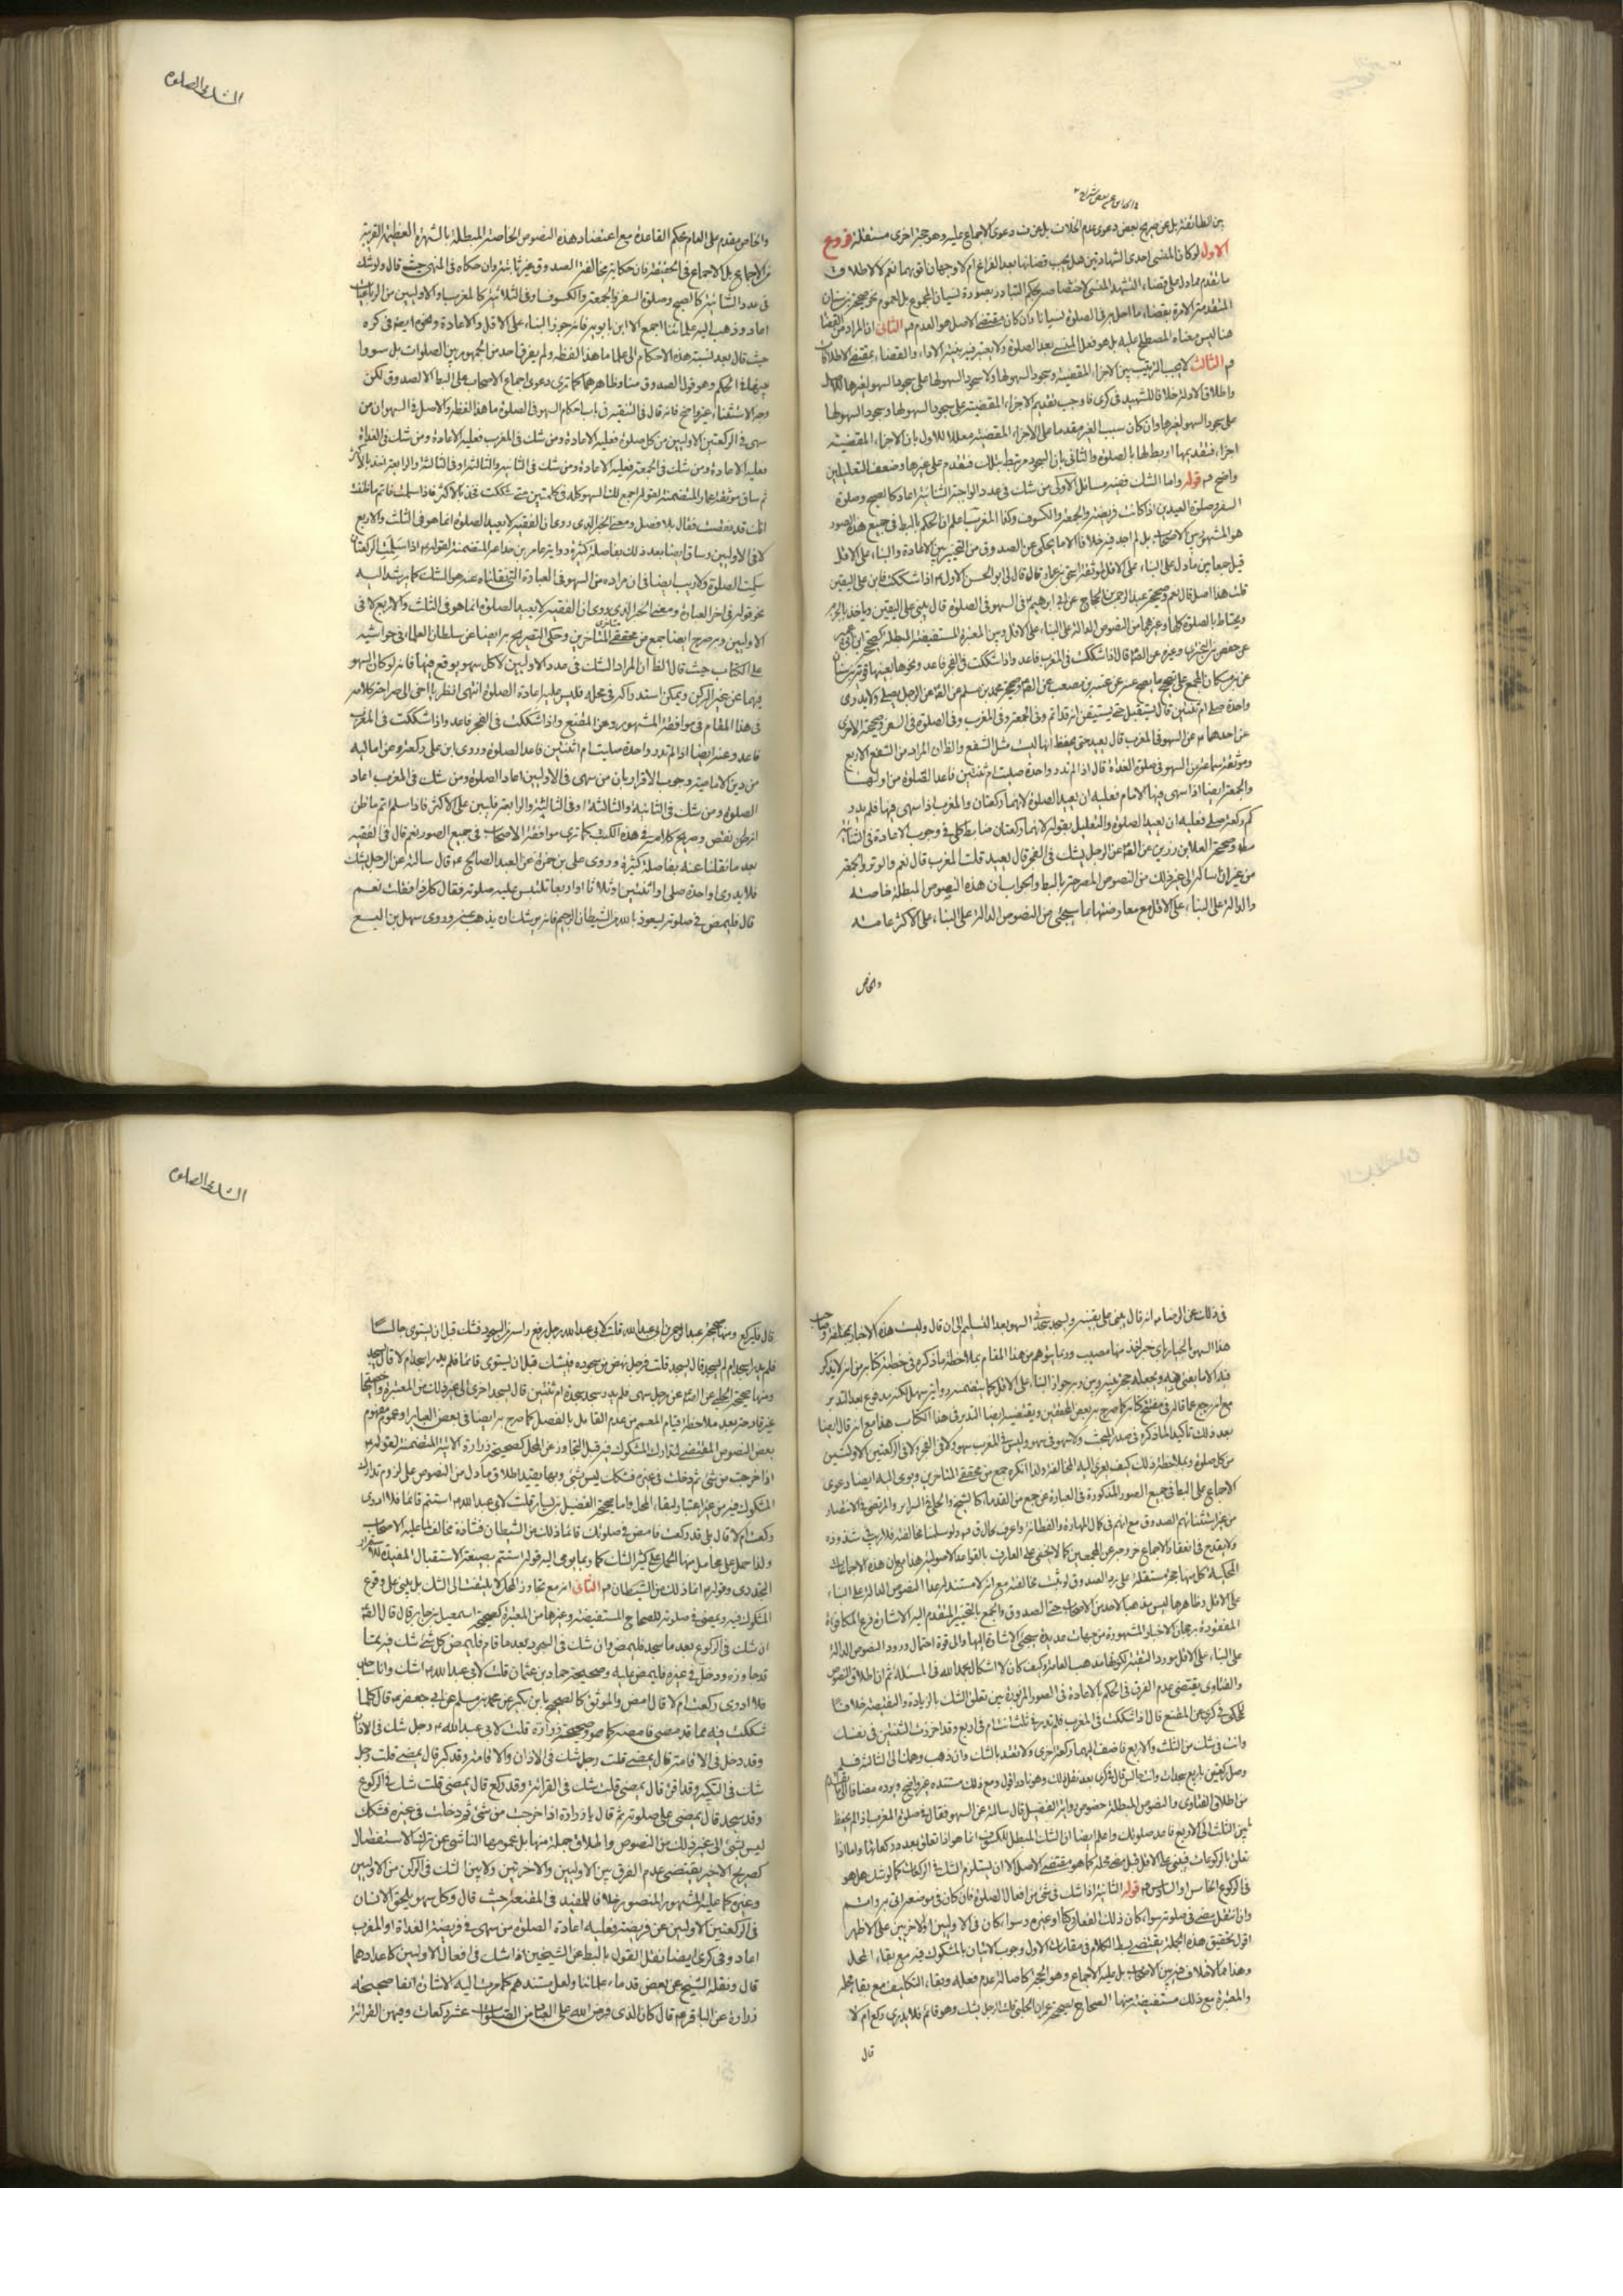 بين الطائفة بل عن صريح بعض دعوى عدم الخلاف بل عن ف دعوى الاجماع عليه وهو حجة اخرى مستقلة فروع
الاول لو كان المنسى احدى الشهادتين هل يجب قضائها بعد الفراغ ام لا وجهان اقويهما نعم لا لاطلاق
ما تقدم مما دل على قضاء التشهد المنسى لاختصاصه بحكم التبادر بصورة نسيان المجموع بل لعموم نحو صحيحة بن سنان
المتقدمة الامرة بقضاء ما اخل به فى الصلوة نسيانا وان كان مقتضى الاصل هو العدم فه الثانى
هنا ليس معناه المصطلح عليه بل هو فعل المنسى بعد الصلوة ولا يعتبر فيه بنية الاداء والقضاء بمقتضى الاطلاقات
فه الثالث لا يجب الترتيب بين الاجزاء المقضية وسجود السهو لها ولا سجود السهو لها على سجود السهو لغيرها
واطلاق الادلة خلافا للشهيد فى كرى فاوجب تقديم الاجزاء المقضية على سجود السهو لها وسجود السهو لها
على سجود السهو لغيرها وان كان سبب الغير مقدما على الاجزاء المقضية معللا للاول بان الاجزاء المقضية
اجزاء فتقديمها اربط لها بالصلوة والثانى بان السجود مرتبط بتلك فتقدم على غيرها وضعف التعليلين
واضح فه قوله واما الشك ففيه مسائل الاولى من شك فى عدد الواجبة الثنائية اعاد كالصبح وصلوة
السفر وصلوة العيدين اذا كانت فريضة والجمعة والكسوف وكذا المغرب اعلم ان الحكم بالبط فى جميع هذه الصور
هو المشهور بين الاصحاب بل لم اجد فيه خلافا الا ما يحكى عن الصدوق من التخيير بين الاعادة والبناء على الاقل
قيل جمعا بين ما دل على البناء على الاقل لموثقة اسحق بن عمار قال قال لى ابو الحسن الاول ع اذا شككت فابن على اليقين
قلت هذا اصل قال نعم وصحيحة عبد الرحمن بن الحجاج عن ابى ابراهيم ع فى السهو فى الصلوة قال يبنى على اليقين وياخذ بالجزم
ويحتاط بالصلوة كلها وغيرهما من النصوص الدالة على البناء على الاقل وبين المعتبرة المستفيضة المبطلة
عن حفص بن البخترى وغيره عن الصه قال اذا شككت فى المغرب فاعد واذا شككت فى الفجر فاعد
واحدة صلى ام ثنتين قال يستقبل حتى يستيقن انه قد اتم وفى الجمعة وفى المغرب وفى الصلوة فى السفر
عن احدهما ع عن السهو فى المغرب قال يعيد حتى يحفظ انها ليست مثل الشفع والظ ان المراد من الشفع الاربع
وموثقة سماعة عن السهو فى صلوة الغداة قال اذا لم تدر واحدة صليت ام ثنتين فاعد الصلوة من اولها
والجمعة ايضا اذا سهى فيها الامام فعليه ان يعيد الصلوة لانهما ركعتان والمغرب اذا سهى فيها فلم يدر
كم ركعة صلى فعليه ان يعيد الصلوة والتعليل بقوله لانهما ركعتان ضابط كلى فى وجوب الاعادة فى الثنائية
وصحيحة العلا بن رزين عن الصه عن الرجل يشك فى الفجر قال يعيد قلت المغرب قال نعم والوتر والجمعة
من غير ان اساله الى غير ذلك من النصوص المصرحة بالبط والجواب ان هذه النصوص المبطلة خاصة
والدالة على البناء على الاقل مع معارضتها بما سيجئ من النصوص الدالة على البناء على الاكثر عامة
والخاص
الشك فى الصلوة
والخاص مقدم على العام بحكم القاعدة مع اعتضاد هذه النصوص الخاصة المبطلة بالشهرة العظيمة القريبة
من الاجماع بل الاجماع فى الحقيقة فان حكاية مخالفة الصدوق غير ثابتة وان حكاه فى المنهى حيث قال ولو شك
فى عدد الثنائية كالصبح وصلوة السفر والجمعة والكسوف او فى الثلاثية كالمغرب او الاوليين من الرباعيات
اعاد وذهب اليه علمائنا اجمع الا ابن بابويه فانه جوز البناء على الاقل والاعادة ونحوه ايضه فى كره
حيث قال بعد نسبة هذه الاحكام الى علمائنا ما هذا لفظه ولم يفرق احد من الجمهور بين الصلوات بل سووا
بينها فى الحكم وهو قول الصدوق منا وظاهرهما كما ترى دعوى اجماع الاصحاب على البط الا الصدوق لكن
وجه الاستثناء غير واضح فانه قال فى الفقيه فى باب احكام السهو فى الصلوة ما هذا لفظه والاصل فى السهو ان من
سهى فى الركعتين الاوليين من كل صلوة فعليه الاعادة ومن شك فى المغرب فعليه الاعادة ومن شك فى الغداة
فعليه الاعادة ومن شك فى الجمعة فعليه الاعادة ومن شك فى الثانية والثالثة او فى الثالثة والرابعة اخذ بالاكثر
ثم ساق موثقة عمار المتضمنة لقوله اجمع لك السهو كله فى كلمتين متى شككت فخذ بالاكثر فاذا سلمت فاتم ما ظننت
انك قد نقصت فقال بلا فصل ومعنى الخبر الذى روى ان الفقيه لا يعيد الصلوة انما هو فى الثلث والاربع
لا فى الاوليين وساق ايضا بعد ذلك بفاصلة كثيرة رواية عامر بن جذاعة المتضمنة لقوله ع اذا سلمت الركعتان
سلمت الصلوة ولا ريب ايضا فى ان مراده من السهو فى العبارة التى نقلناه عنه هو الشك كما يرشد اليه
نحو قوله فى اخر العبارة ومعنى الخبر الذى روى ان الفقيه لا يعيد الصلوة انما هو فى الثلث والاربع لا فى
الاوليين وبه صرح ايضا جمع من محققى المتاخرين وحكى التصريح به ايضا عن سلطان العلماء فى حواشيه
على الكتاب حيث قال الظ ان المراد الشك فى عدد الاوليين لا كل سهو يوقع فيها فانه لو كان السهو
فيهما عن غير الركن ويمكن استدراكه فى محله فليس عليه اعادة الصلوة انتهى انظر يا اخى الى صراحة كلامه
فى هذا المقام فى موافقة المشهور وعن المقنع واذا شككت فى الفجر فاعد واذا شككت فى المغرب
فاعد وعنه ايضا اذا لم تدر واحدة صليت ام اثنتين فاعد الصلوة وروى ابن على ركعة وعن اماليه
من دين الامامية وجوب الاقرار بان من سهى فى الاوليين اعاد الصلوة ومن شك فى المغرب اعاد
الصلوة ومن شك فى الثانية والثالثة او فى الثالثة والرابعة فليبن على الاكثر فاذا سلم اتم ما ظن
انه قد نقص وصريح كلامه فى هذه الكتب كما ترى موافقة الاصحاب فى جميع الصور نعم قال فى الفقيه
بعد ما نقلنا عنه بفاصلة كثيرة وروى على بن حمزة عن العبد الصالح ع قال سالته عن الرجل يشك
فلا يدرى واحدة صلى او اثنتين او ثلاثا او اربعا تلتبس عليه صلوته فقال كل ذا فقلت نعم
قال فليمض فى صلوته ليعوذ بالله من الشيطان الرجيم فانه يوشك ان يذهب عنه وروى سهل بن اليسع
فى ذلك عن الرضا ع انه قال يبنى على يقينه ويسجد سجدتى السهو بعد التسليم الى ان قال وليست هذه الاخبار بمختلفة
هذا السهو بالخيار باى خبر اخذ منها مصيب وربما يتوهم من هذا المقام بملاحظة ما ذكره فى خطبة كتابه من انه لا يذكر
فيه الا ما يفتى به ويجعله حجة بينه وبين ربه جواز البناء على الاقل كما يتضمنه رواية سهل لكنه مدفوع بعد التدبر
بعد ذلك تاكيدا لما ذكره فى صدر المبحث ولا سهو فى سهو وليس فى المغرب سهو ولا فى الفجر ولا فى الركعتين الاوليتين
من كل صلوة وبملاحظة ذلك كيف يعزى اليه المخالفة ولذا انكره جمع من محققى المتاخرين ويومى اليه ايضا دعوى
الاجماع على البط فى جميع الصور المذكورة فى العبارة عن جمع من القدماء كالشيخ والحلى فى السرائر والمرتضى فى الانتصار
من غير استثنائهم الصدوق مع انهم فى كمال المهارة والفطانة واعرف بحال ق فه ولو سلمنا مخالفته فلا ريب فى شذوذه
ولا يقدح فى انعقاد الاجماع خروجه عن المجمعين كما لا يخفى على العارف بالقواعد الاصولية هذا مع ان هذه الاجماعات
المحكية كل منها حجة مستقلة على رد الصدوق لو ثبت مخالفته مع انه لا مستند له عدا النصوص الدالة على البناء
على الاقل وظاهرها ليس مذهبا لاحد من الاصحاب حتى الصدوق والجمع بالتخيير المتقدم اليه الاشارة فرع المكافاة
المفقودة برجحان الاخبار المشهورة من جهات عديدة سيجئ الاشارة اليها والى قوة احتمال ورود النصوص الدالة
على البناء على الاقل مورد التقية لكونها مذهب العامة وكيف كان لا اشكال بحمد الله فى المسئلة ثم ان اطلاق النصوص
والفتاوى يقتضى عدم الفرق فى الحكم بالاعادة فى الصور المزبورة بين تعلق الشك بالزيادة والنقيصة خلافا
للمحكى فى كرى عن المقنع قال اذا شككت فى المغرب فلم تدر فى ثلث انت ام فى اربع وقد احرزت الثنتين فى نفسك
وانت فى شك من الثلث والاربع فاضف اليها ركعة اخرى ولا تعتد بالشك وان ذهب وهمك الى الثالثة فسلم
وصل ركعتين باربع سجدات وانت جالس قال فى كرى بعد نقل ذلك وهو نادر اقول ومع ذلك مستنده غير واضح
من اطلاق الفتاوى والنصوص المبطلة خصوص رواية الفضيل قال سالته عن السهو فقال فى صلوة المغرب اذا لم يحفظ
ما بين الثلث الى الاربع فاعد صلوتك واعلم ايضا ان الشك المبطل للكسوف انما هو اذا تعلق بعدد ركعاتها واما اذا
تعلق بالركوعات فيبنى على الاقل قبل مضى محله كما هو مقتضى الاصل الا ان يستلزم الشك فى الركعات كما لو شك هل هو
فى الركوع الخامس او السادس فه قوله الثانية اذا شك فى شئ من افعال الصلوة فان كان فى موضعه اتى به واتم
وان انتقل مضى فى صلوته سواء كان ذلك الفعل ركنا او غيره وسواء كان فى الاوليين او الاخريين على الاظهر
اقول تحقيق هذه الجملة يقتضى بسط الكلام فى مقامات الاول وجوب الاتيان بالمشكوك فيه مع بقاء المحل
وهذا مما لا خلاف فيه بين الاصحاب بل عليه الاجماع وهو الحجة كاصالة عدم فعله وبقاء التكليف مع بقاء محله
والمعتبرة مع ذلك مستفيضة منها الصحاح كصحيحة عمران الحلبى قلت الرجل يشك وهو قائم فلا يدرى ركع ام لا
قال
الشك فى الصلوة
قال فليركع ومنها صحيحة عبد الرحمن بن ابى عبد الله قلت لابى عبد الله رجل رفع راسه من السجود فشك قبل ان يستوى جالسا
فلم يدر اسجد ام لم يسجد قال يسجد قلت فرجل نهض من سجوده فشك قبل ان يستوى قائما فلم يدر اسجد ام لا قال يسجد
ومنها صحيحة الحلبى عن الصه عن رجل سهى فلم يدر سجد سجدة ام ثنتين قال يسجد اخرى الى غير ذلك من المعتبرة
غير قادحة بعد ملاحظة قيام المعمم من عدم القائل بالفصل كما صرح به ايضا فى بعض العبائر او عموم مفهوم
بعض النصوص المقتضى لتدارك المشكوك فيه قبل التجاوز عن المحل كصحيحة زرارة الاتية المتضمنة لقوله ع
اذا خرجت من شئ ثم دخلت فى غيره فشكك ليس بشئ وبها يقيد اطلاق ما دل من النصوص على لزوم تدارك
المشكوك فيه من غير اعتبار لبقاء المحل واما صحيحة الفضيل بن يسار قلت لابى عبد الله ع استتم قائما فلا ادرى
ركعت ام لا قال بلى قد ركعت فامض فى صلوتك فانما ذلك من الشيطان فشاذة مخالف لما عليه الاصحاب
ولذا حمل على محامل منها الحمل على كثير الشك كما ربما يومى اليه قوله استتم بصيغة الاستقبال المفيدة للاستمرار
التجددى وقوله ع انما ذلك من الشيطان فه الثانى انه مع تجاوز المحل لا يلتفت الى الشك بل يبنى على وقوع
المشكوك فيه ويمضى فى صلوته للصحاح المستفيضة وغيرها من المعتبرة كصحيحة اسمعيل بن جابر قال قال الصه
ان شك فى الركوع بعد ما سجد فليمض وان شك فى السجود بعد ما قام فليمض كل شئ شك فيه مما
قد جاوزه ودخل فى غيره فليمض عليه وصحيحة حماد بن عثمان قلت لابى عبد الله ع اشك وانا ساجد
فلا ادرى ركعت ام لا قال امض والموثق كالصحيح بابن بكير عن محمد بن مسلم عن ابى جعفر ع قال كلما
شككت فيه مما قد مضى فامضه كما هو وصحيحة زرارة قلت لابى عبد الله ع رجل شك فى الاذان
وقد دخل فى الاقامة قال يمضى قلت رجل شك فى الاذان والاقامة وقد كبر قال يمضى قلت رجل
شك فى التكبير وقد قرء قال يمضى قلت شك فى القرائة وقد ركع قال يمضى قلت شك فى الركوع
وقد سجد قال يمضى على صلوته ثم قال يا زرارة اذا خرجت من شئ ثم دخلت فى غيره فشكك
ليس بشئ الى غير ذلك من النصوص واطلاق جملة منها بل عمومها الناشى عن ترك الاستفصال
كصريح الاخير يقتضى عدم الفرق بين الاوليين والاخرتين ولا بين الشك فى الركن من الاوليين
وغيره كما عليه المشهور المنصور خلافا للمفيد فى المقنعة حيث قال وكل سهو يلحق الانسان
فى الركعتين الاوليين من فريضته فعليه اعادة الصلوة من سهى فى فريضة الغداة او المغرب
اعاد وفى كرى ايضا نقل القول بالبط عن الشيخين اذا شك فى افعال الاوليين كاعدادهما
قال ونقله الشيخ عن بعض قدماء علمائنا ولعل مستندهم كما مرت اليه الاشارة انفا صحيحة
زرارة عن الباقر ع قال كان الذى فرض الله على العباد من الصلوات عشر ركعات وفيهن القرائة